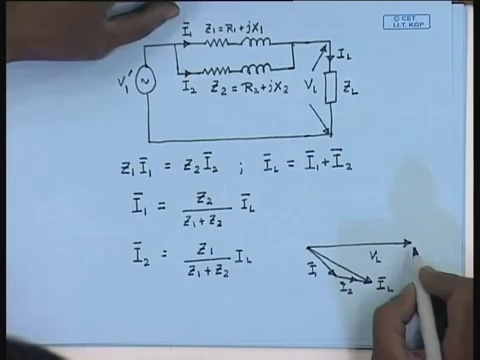 © CET
I.I.T. KGP
Ī₁ Z₁ = R₁ + jX₁
I_L
V₁′ I₂ Z₂ = R₂ + jX₂ V_L Z_L
Z₁Ī₁ = Z₂Ī₂ ; Ī_L = Ī₁ + Ī₂
Ī₁ = Z₂ / (Z₁ + Z₂) Ī_L
Ī₂ = Z₁ / (Z₁ + Z₂) I_L
V_L
Ī₁ Ī₂ Ī_L